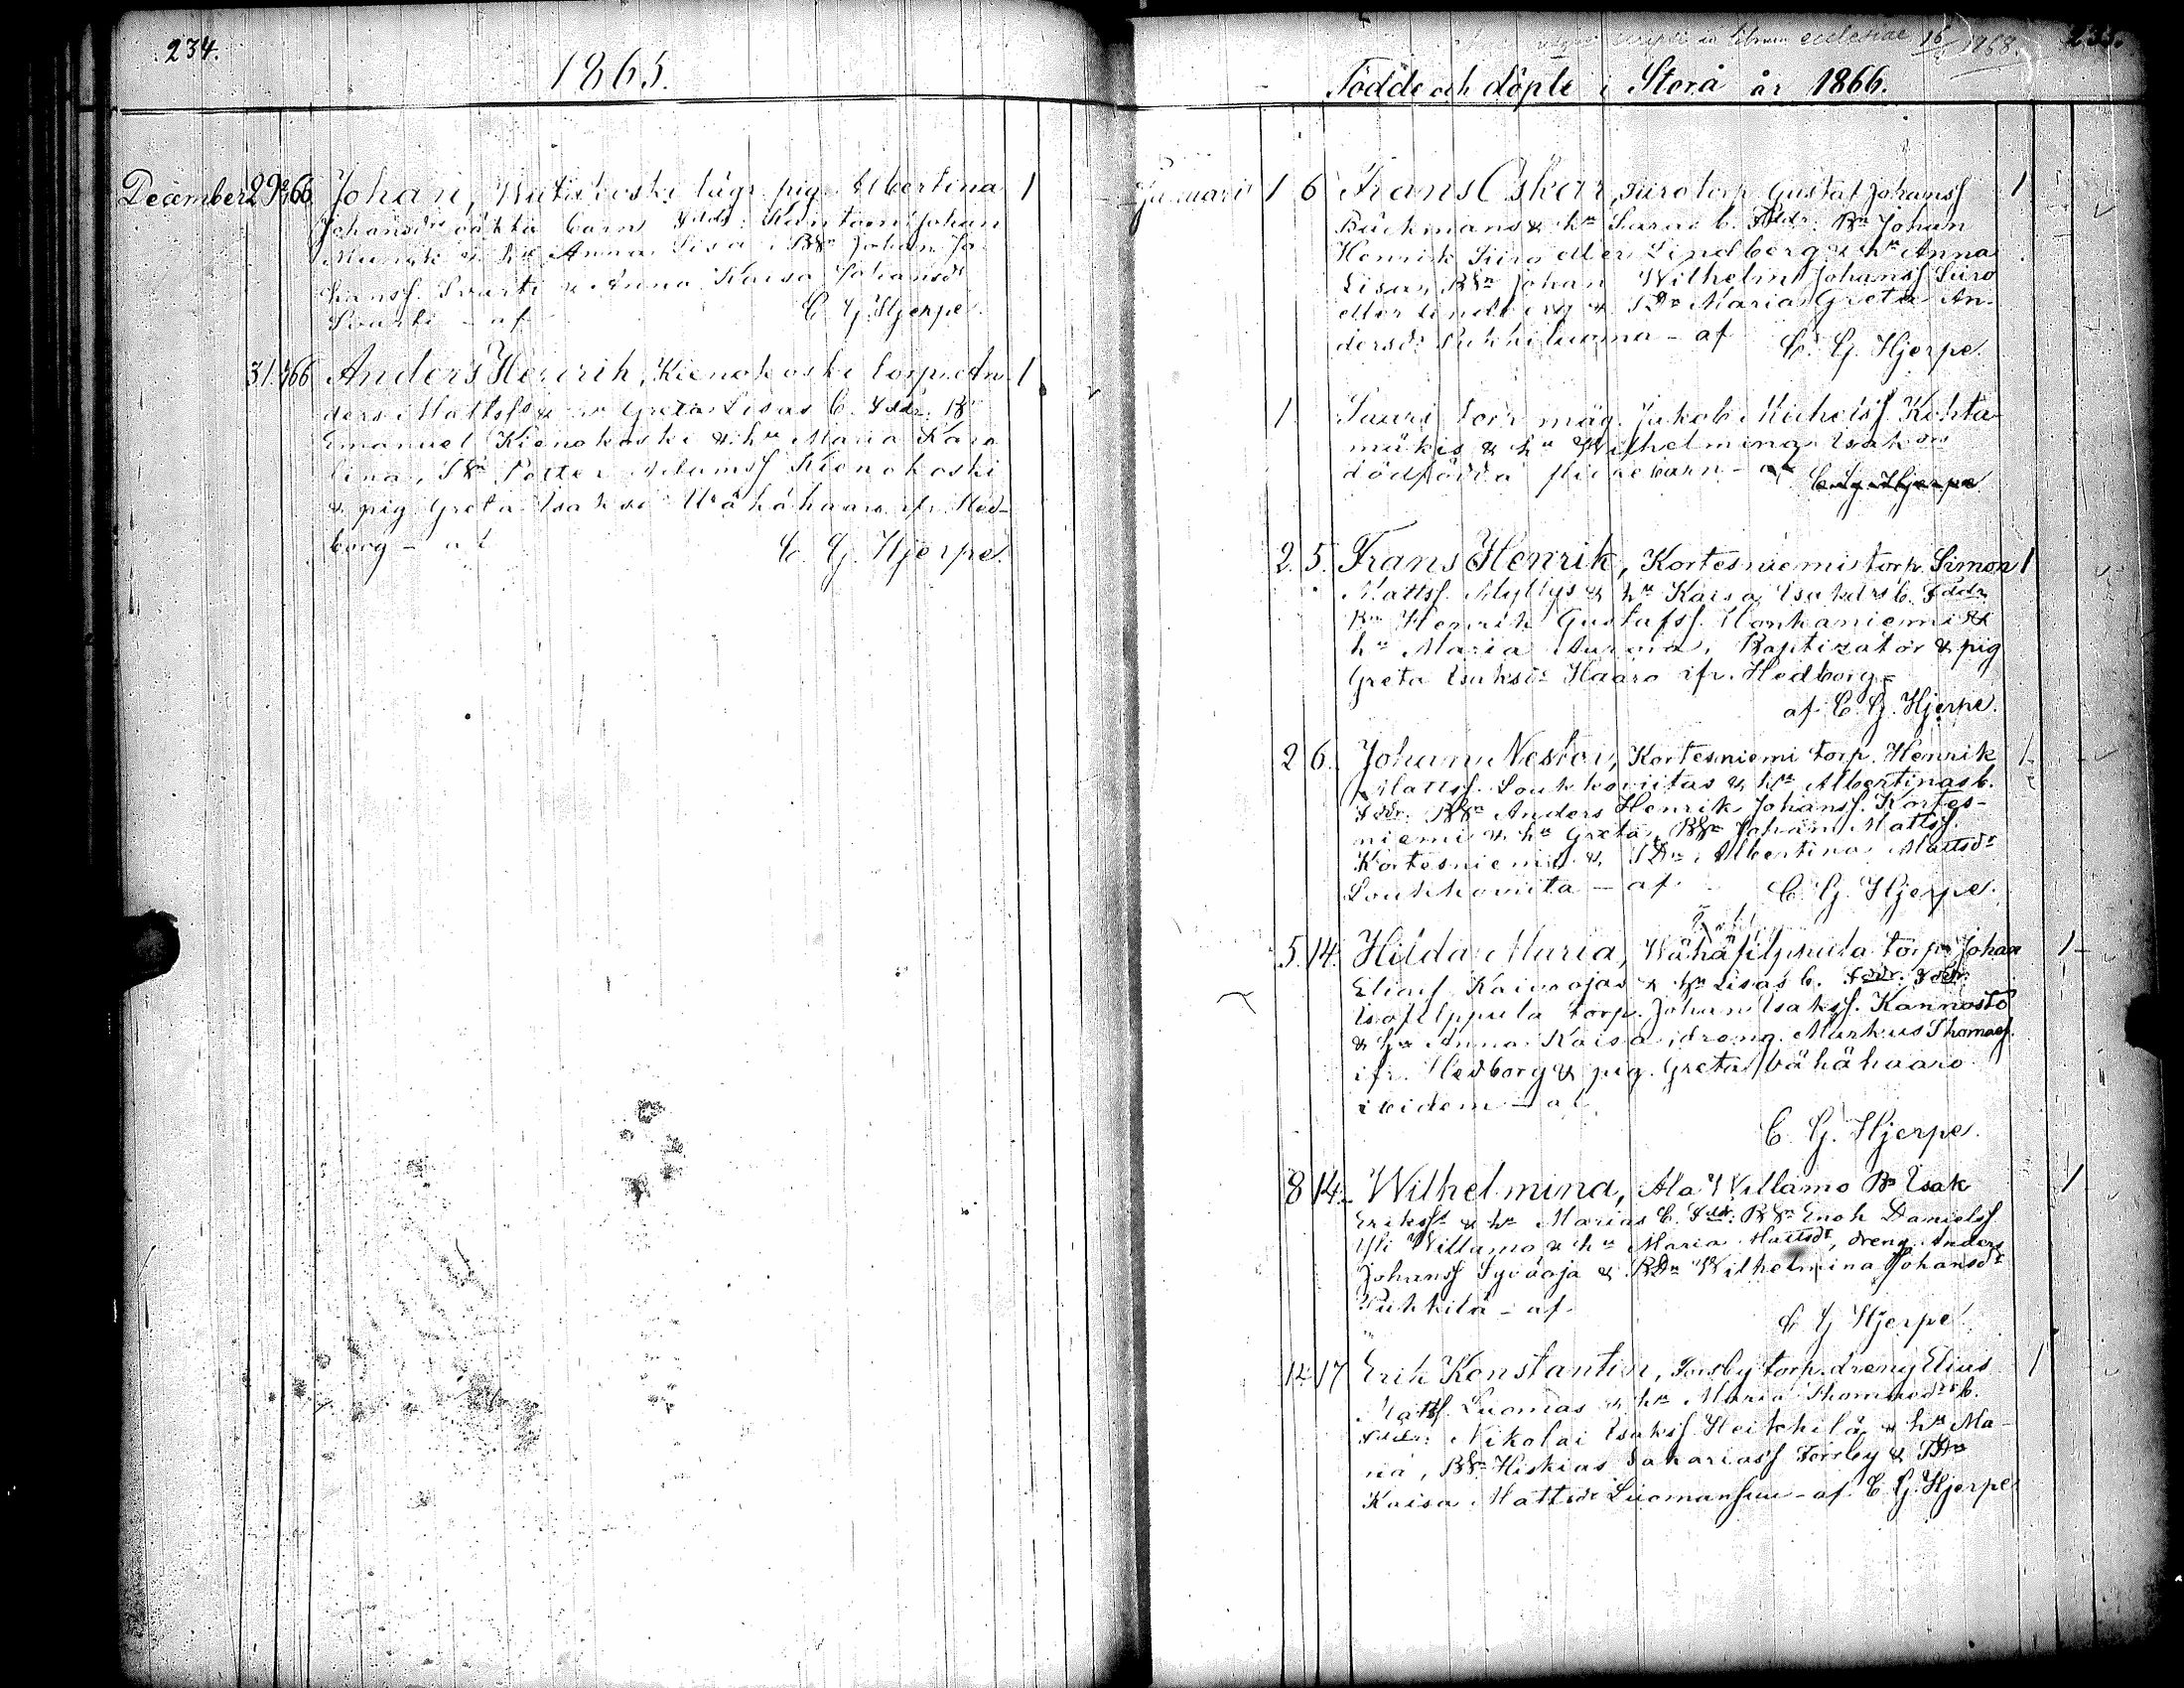 234.
1865.
December 29 66 Johan, lägr. pig. Albertina 1
Johansdrs oäkta barn Fddr: Johan
Munk & hu Anna Lisa, BSn Johan Jo-
hanss. Svarti & Anna Kaisa Johansdr
Svarti - af C. G. Hjerpe.
31. 66 Anders Henrik, Kienokoski torp. An- 1
ders Mattss & hu Greta Lisas b. Fddr: Bn
Emanuel Kienokoski & hu Maria Karo
lina, Petter Adamss Kienokoski
& pig Greta Isaksdr Wähähaaro ifr. Hed-
borg - af C. G. Hjerpe.
scripsi in librum ecclesiae 16/ 1868. 235.
Födde och döpte i Storå år 1866.
Januari 1 6 Frans Oskar, Siiro torp Gustaf Johanss 1
Backmans & hu Saras b. Fddr: Bn Johan
Henrik Siiro eller Lindberg & hu Anna
Lisa, BSn Johan Wilhelm Johanss Siiro
eller Lindberg & Maria Greta An-
dersdr - af C. G. Hjerpe.
1. Sauri torp. måg Jakob Michelss Kohta
mäkis & hu Wilhelmina Isaksdrs
dödfödda flickebarn - af C. G. Hjerpe
2. 5. Frans Henrik, Kortesniemi torp. Simon 1
Mattss. Myllys & hu Kaisa Isaksdrs b. Fddr
Bn Henrik Gustafss. Honkaniemi &
hu Maria, Baptizator & pig
Greta Isaksdr Haaro ifr. Hedborg -
af C. G. Hjerpe.
2 6. Johan Nestor, Kortesniemi torp. Henrik 1
Mattss. Loukkoviitas & hu Albertinas b.
Fddr: BSn Anders Henrik Johanss. Kortes-
niemi & hu Greta, BSn Johan Mattss.
Kortesniemi & Albertina Mattsdr
Loukkoviita - af C. G. Hjerpe.
5. 14. Hilda Maria, Wähäfilppula torp Johan 1
Eliass Kaivoojas & hu Lisas b. Fddr. Fddr.
Isofilppula torp. Johan Isakss. Kannosto
& hu Anna Kaisa, dreng. Markus Thomass.
ifr. Hedborg & pig. Greta Vähähaaro
ibidem - af
C. G. Hjerpe.
8 14. Wilhelmina, Ala Willamo Bn Isak 1
Erikss & hu Marias b. Fddr: BSn Enok Danielss
Yli Willamo & hu Maria Mattsdr, dreng Anders
Johanss Syväoja & BDn Wilhelmina Johansdr
- af C G Hjerpe
12. 17 Erik Konstantin, Forsby torp. dreng Elias 1
Mattss. Luomas & hu Maria Thomasdrs b.
Fddr: Nikolai Isakss Heikkilä & hu Ma-
ria, BSn Hiskias Sakariass Forsby & TDn
Kaisa Mattsdr Luomansuu - af C. G. Hjerpe